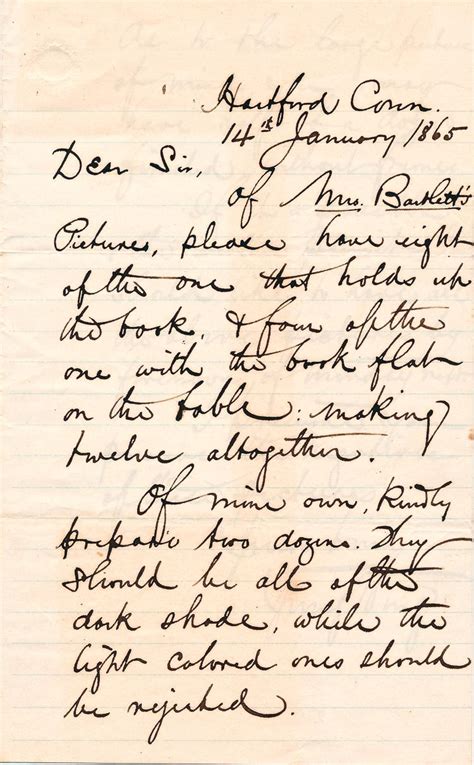 Hartford Conn.
14th January 1865
Dear Sir,
of Mrs. Bartlett's
Pictures, please have eight
of the one that holds up
the book, & four of the
one with the book flat
on the table: making
twelve altogether.
Of mine own, kindly
prepare two dozens. They
should be all of the
dark shade, while the
light colored ones should
be rejected.